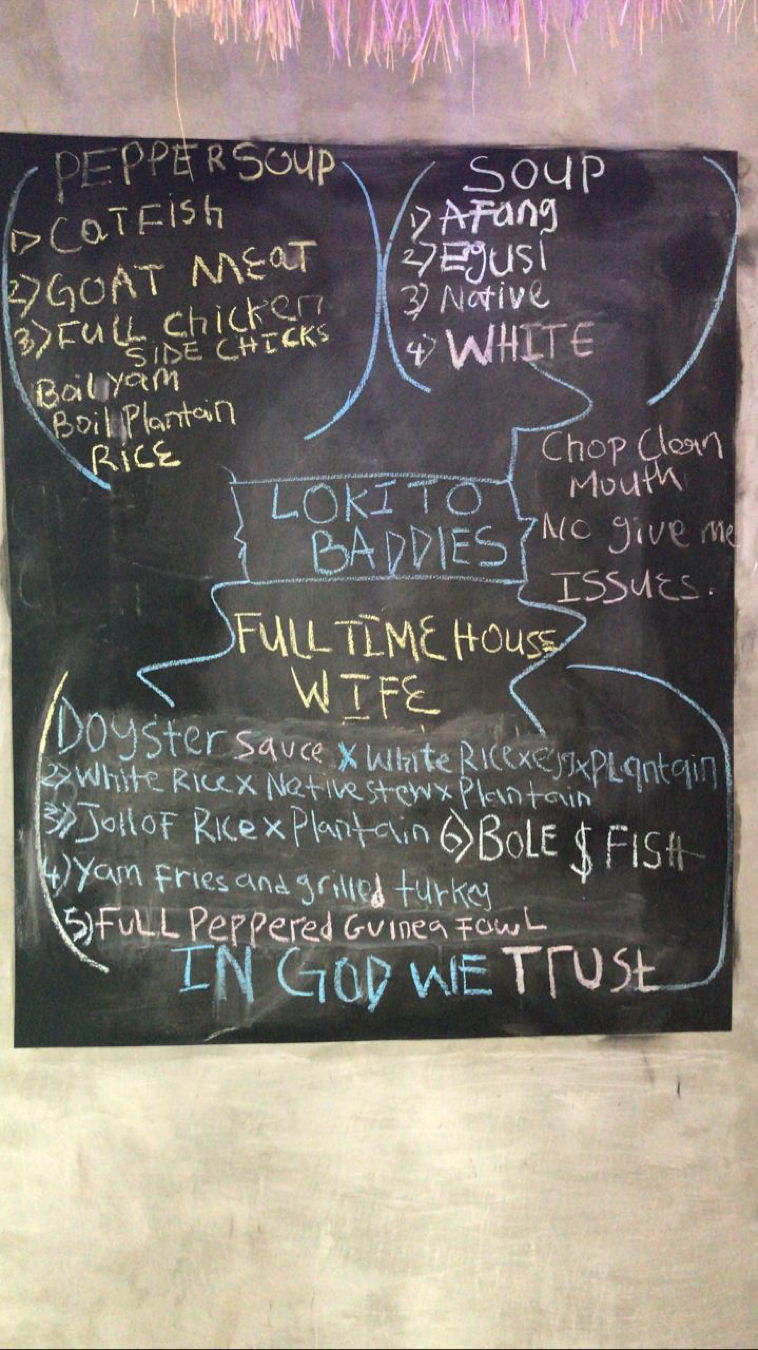 PEPPER SOUP
1) CATFISH
2) GOAT MEAT
3) FULL Chicken
SIDE CHICKS
Boil yam
Boil Plantain
RICE
SOUP
1) AFang
2) Egusi
3) Native
4) WHITE
Chop Clean
Mouth
No give me
ISSUES.
LOKITO
BADDIES
FULL TIME HOUSE
WIFE
1) Oyster sauce x White Rice x Egg x Plantain
2) White Rice x Native stew x Plantain
3) Jollof Rice x Plantain
6) BOLE $ FISH
4) Yam Fries and grilled turkey
5) FULL Peppered Guinea FOWL
IN GOD WE TRUST